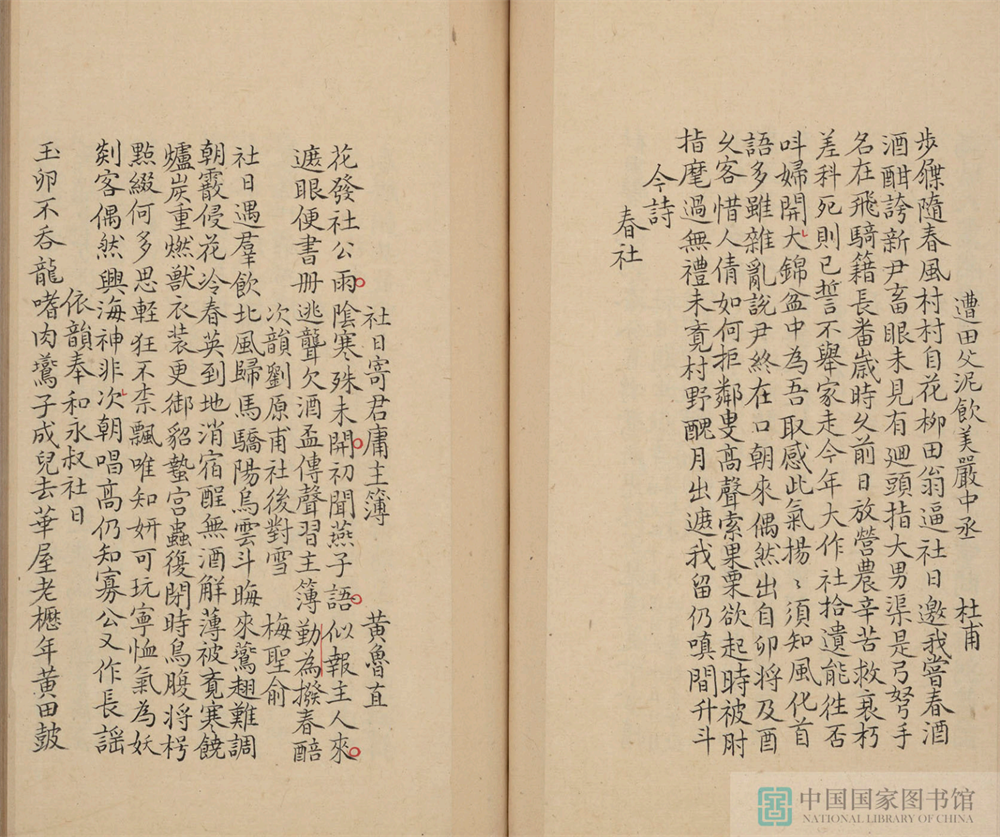 遭田父泥飲美嚴中丞 杜甫
步屧隨春風村村自花柳田翁逼社日邀我嘗春酒
酒酣誇新尹畜眼未見有廻頭指大男渠是弓弩手
名在飛騎籍長畨歳時久前日放營農辛苦救衰朽
差科死則已誓不舉家走今年大作社拾遺能徃否
呌婦開大錦盆中為吾取感此氣揚〻須知風化首
語多雖雜亂說尹終在口朝來偶然出自卯將及酉
久客惜人情如何拒鄰叟高聲索果栗欲起時被肘
指麾過無禮未覔村野醜月出遮我留仍嗔問升斗
今詩
春社
社日寄君庸主簿 黄魯直
花發社公雨陰寒殊未開初聞燕子語似報主人來
遮眼便書册逃聾欠酒盃傳聲習主簿勤為撥春醅
次韻劉原甫社後對雪 梅聖俞
社日遇羣飲北風歸馬驕陽烏雲斗晦來鷰翅難調
朝霰侵花冷春英到地消宿酲無酒解薄被竟寒饒
爐炭重燃獸衣裝更御貂蟄宫蟲復閉時鳥腹将枵
㸃綴何多思輕狂不柰飄唯知妍可玩寧恤氣為妖
剡客偶然興海神非次朝唱高仍知寡公又作長謡
依韻奉和永叔社日
玉卵不吞龍嗜肉鷰子成兒去華屋老櫪年黄田鼓
中国国家图书馆
NATIONAL LIBRARY OF CHINA